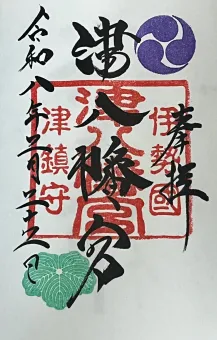 奉拝
伊勢國
津八幡宮
津八幡宮
津鎮守
令和八年二月二十六日